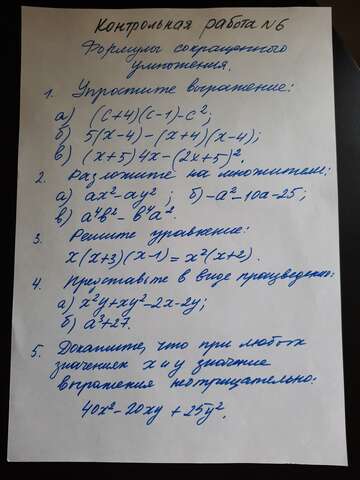 Контрольная работа №6
Формулы сокращенного
умножения.
1. Упростите выражение:
а) (c+4)(c-1)-c²;
б) 5(x-4)-(x+4)(x-4);
в) (x+5)4x-(2x+5)².
2. Разложите на множители:
а) ax²-ay²; б) -a²-10a-25;
в) a⁴b²-b⁴a².
3. Решите уравнение:
x(x+3)(x-1)=x²(x+2).
4. Представьте в виде произведения:
а) x²y+xy²-2x-2y;
б) a³+27.
5. Докажите, что при любых
значениях x и y значение
выражения неотрицательно:
40x²-20xy+25y².